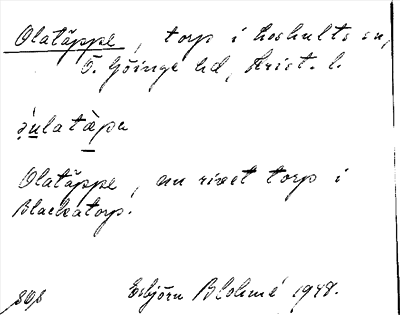 Olatäppe, torp i Loshults sn,
Ö. Göinge hd, Krist. l.
ulatäpa
Olatäppe, nu rivet torp i
Blackatorp.
Esbjörn Blohmé 1948.